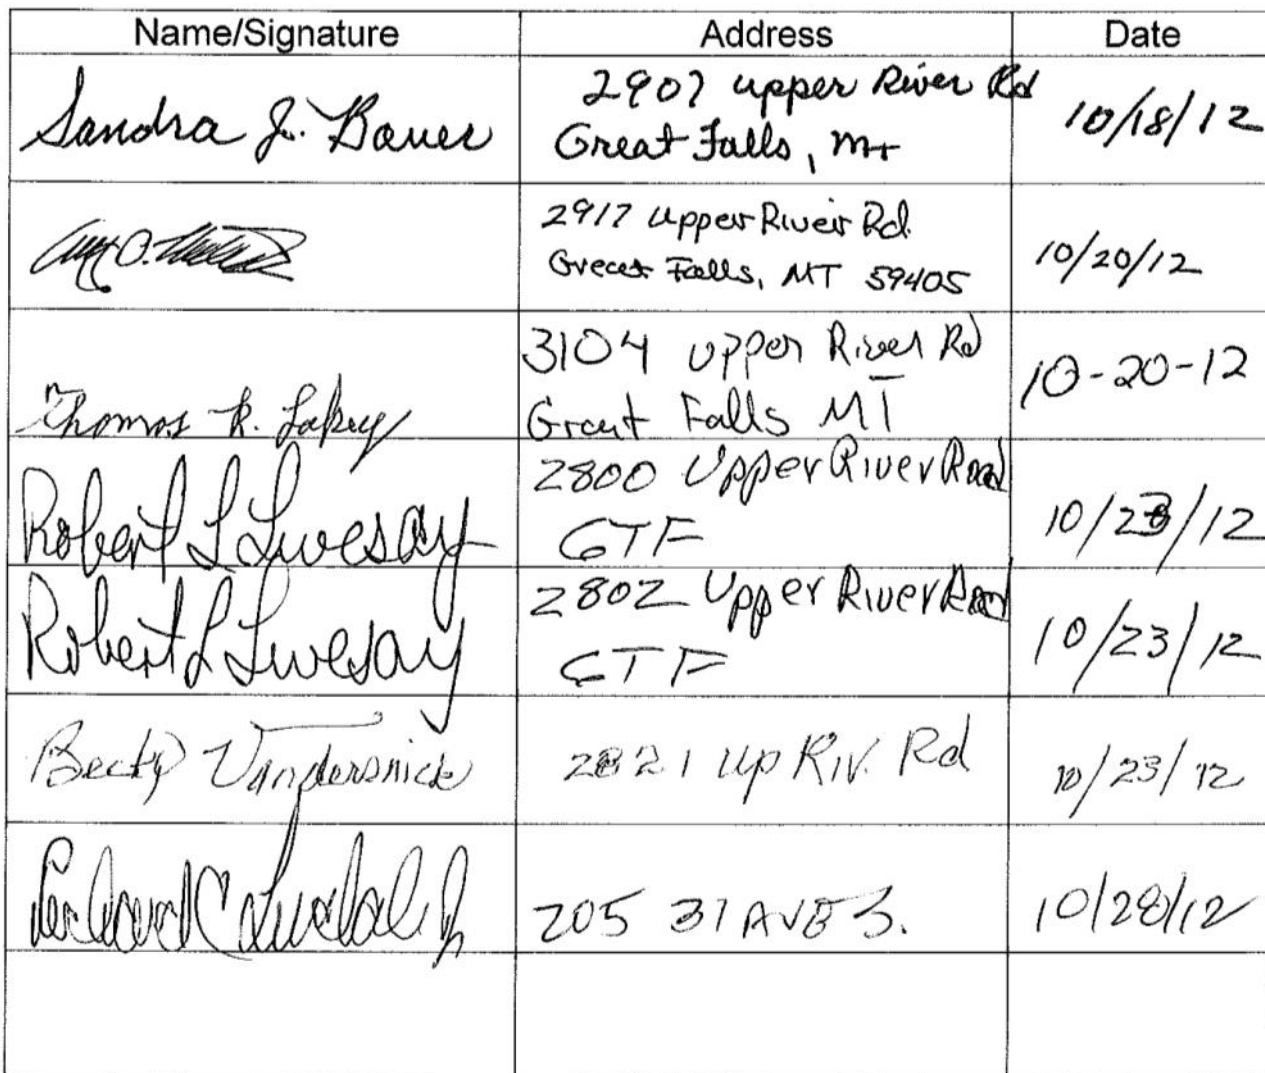 Name/Signature Address Date
Sandra J. Bauer 2907 upper River Rd 10/18/12
Great Falls, MT
2917 Upper River Rd. 10/20/12
Great Falls, MT 59405
Thomas R. Lakey 3104 upper River Rd 10-20-12
Great Falls MT
Robert L Livesay 2800 Upper River Road 10/23/12
GTF
Robert L Livesay 2802 Upper River Road 10/23/12
GTF
Becky Vandersnick 2821 Up Riv. Rd 10/23/12
205 37 AVE S. 10/28/12